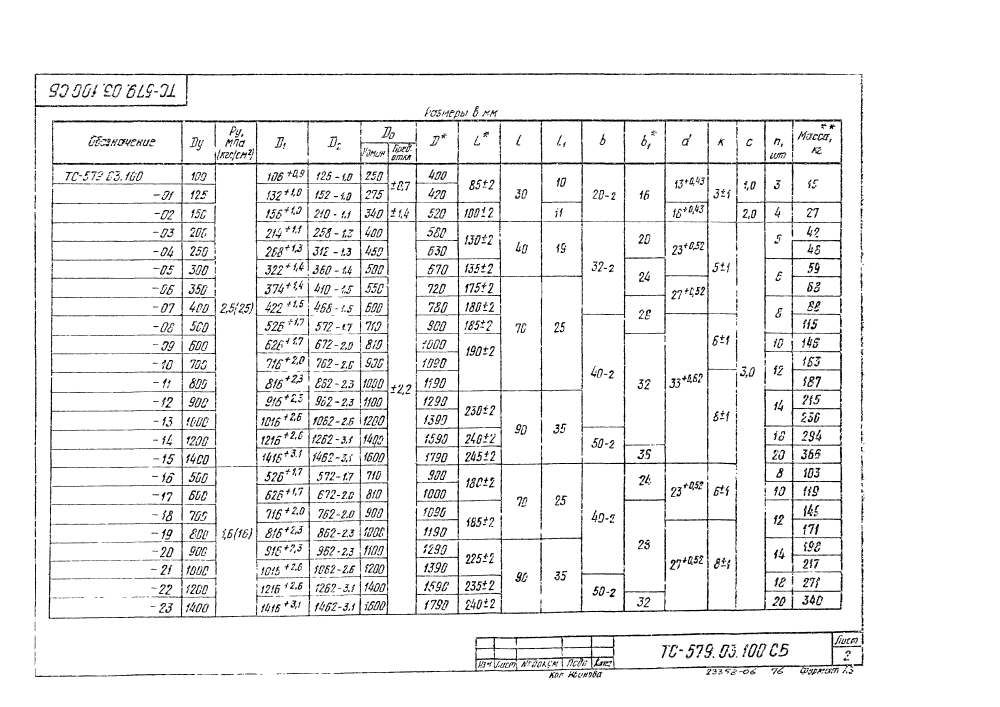 ТС-579.03.100 СБ
Размеры в мм
Обозначение Dy Ру, мпа (кгс/см²) D1 D2 D0 D* L* l l1 b b1* d к с n, шт Масса,** кг
Номин Пред откл
ТС-579.03.100 100 2,5(25) 106+0,9 125-1,0 250 ±0,7 400 85±2 30 10 20-2 16 13+0,43 3±1 1,0 3 15
-01 125 132+1,0 152-1,0 275 420
-02 150 156+1,0 210-1,1 340 ±1,4 520 100±2 11 16+0,43 2,0 4 27
-03 200 214+1,1 258-1,3 400 ±2,2 580 130±2 40 19 32-2 20 23+0,52 5±1 3,0 5 42
-04 250 268+1,3 312-1,3 450 630 48
-05 300 322+1,4 360-1,4 500 670 135±2 24 6 59
-06 350 374+1,4 410-1,5 550 720 175±2 70 25 27+0,52 68
-07 400 422+1,5 468-1,5 600 780 180±2 28 8 88
-08 500 526+1,7 572-1,7 710 900 185±2 40-2 33+0,62 6±1 115
-09 600 626+1,7 672-2,0 810 1000 190±2 32 10 146
-10 700 716+2,0 762-2,0 900 1090 8±1 12 163
-11 800 816+2,3 862-2,3 1000 1190 187
-12 900 916+2,3 962-2,3 1100 1290 230±2 90 35 14 215
-13 1000 1016+2,6 1062-2,6 1200 1390 236
-14 1200 1216+2,6 1262-3,1 1400 1590 240±2 50-2 18 294
-15 1400 1416+3,1 1462-3,1 1600 1790 245±2 36 20 366
-16 500 1,6(16) 526+1,7 572-1,7 710 900 180±2 70 25 40-2 24 23+0,52 6±1 8 103
-17 600 626+1,7 672-2,0 810 1000 10 119
-18 700 716+2,0 762-2,0 900 1090 185±2 28 12 145
-19 800 816+2,3 862-2,3 1000 1190 27+0,52 8±1 171
-20 900 916+2,3 962-2,3 1100 1290 225±2 90 35 14 198
-21 1000 1016+2,6 1062-2,6 1200 1390 217
-22 1200 1216+2,6 1262-3,1 1400 1590 235±2 50-2 18 271
-23 1400 1416+3,1 1462-3,1 1600 1790 240±2 32 20 340
Изм Лист № докум Подп Дата
ТС-579.03.100 СБ
Лист 2
Коп
23398-06 76 Формат А3